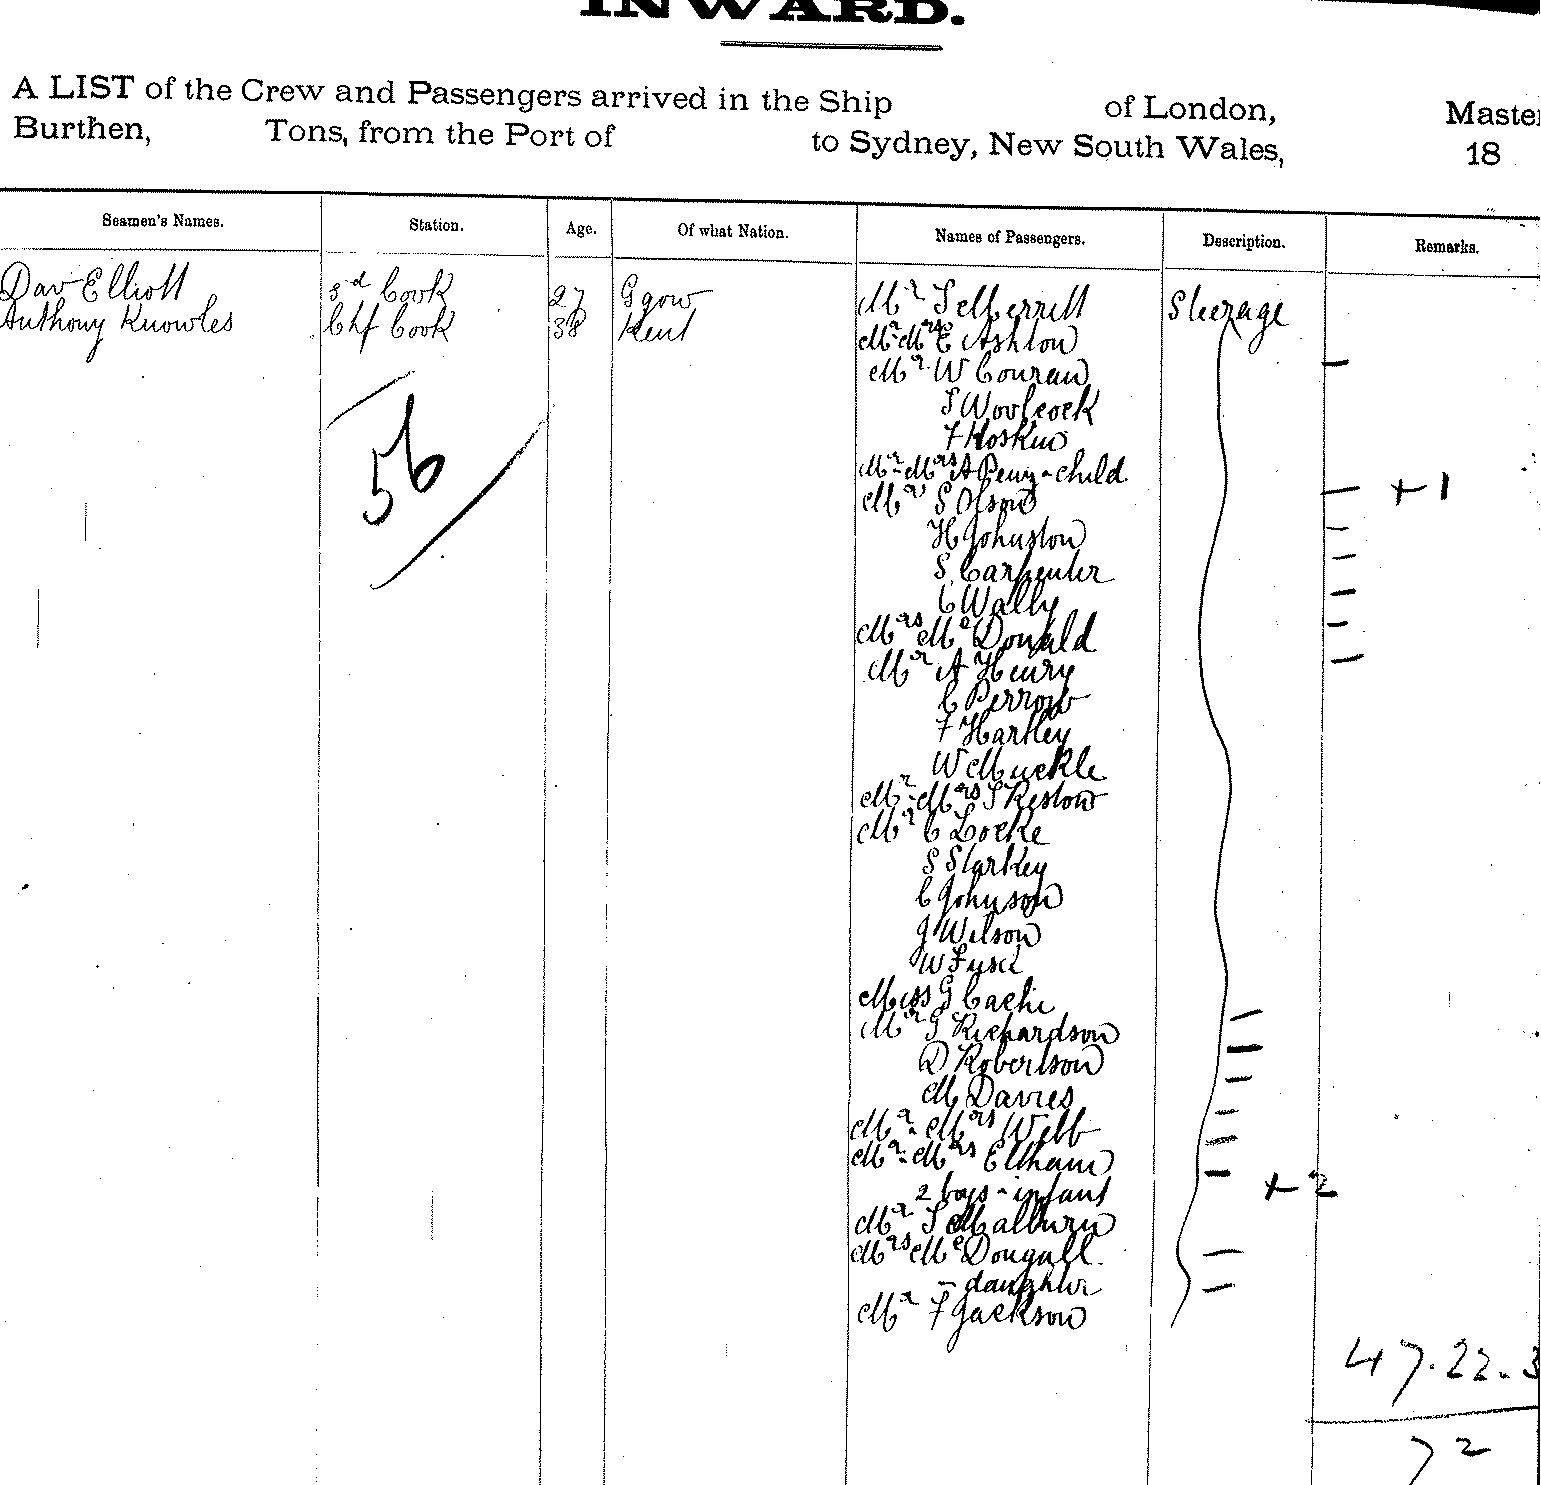 INWARD.
A LIST of the Crew and Passengers arrived in the Ship of London, Master
Burthen, Tons, from the Port of to Sydney, New South Wales, 18
Seamen's Names. Station. Age. Of what Nation. Names of Passengers. Description. Remarks.
Dav Elliott 3d Cook 27 Ggow Mr S Merritt Steerage
Anthony Knowles Chf Cook 38 Kent Mr Mrs E Ashton
Mr W Couran
S Woolcock
F Hoskin
56
Mr - Mrs A Penry - child
Mr S Olson + 1
H Johnston
S Carpenter
C Wally
Mrs McDonald
Mr A Henry
C Perrow
F Hartley
W Muckle
Mr - Mrs S Restow
Mr C Locke
S Starkey
C Johnson
J Wilson
W
Miss G
Mr G Richardson
D Robertson
M Davies
Mr - Mrs Webb
Mr - Mrs Eltham
2 boys - infant + 2
Mr S Malburn
Mrs McDougall
- daughter
Mr F Jackson
47.22.3
72